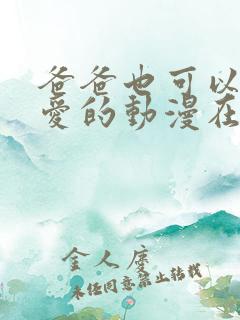 爸爸也可以
愛的動漫在
金人慶
未任同意禁止转载